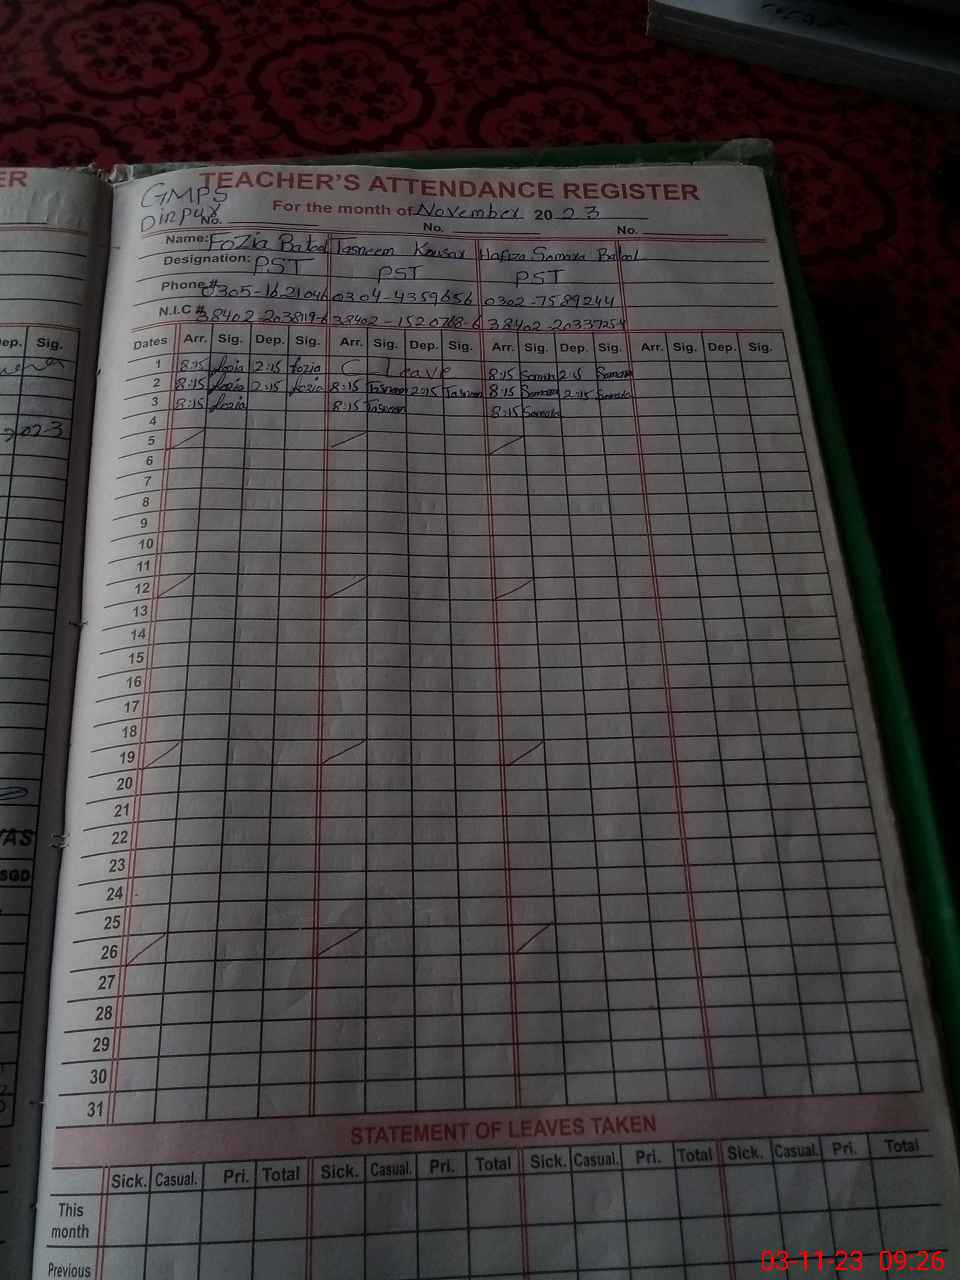 ER
TEACHER'S ATTENDANCE REGISTER
GMPS
Dinpur
For the month of November 2023
No. No. No.
Name: Fozia Batool Tasneem Kousar Hafiza Samara Batool
Designation: PST PST PST
Phone # 0305-1621046 0304-4359656 0302-7589244
N.I.C # 38402-2038119-6 38402-1520768-6 38402-20337254
Dep. Sig. Dates Arr. Sig. Dep. Sig. Arr. Sig. Dep. Sig. Arr. Sig. Dep. Sig. Arr. Sig. Dep. Sig.
1 8:15 fozia 2:15 fozia C Leave 8:15 2:15
2 8:15 fozia 2:15 fozia 8:15 Tasneem 2:15 Tasneem 8:15 Samara 2:15 Samara
3 8:15 fozia 8:15 Tasneem 8:15 Samara
2023
4
5
6
7
8
9
10
11
12
13
14
15
16
17
18
19
20
21
22
23
24
25
26
27
28
29
30
31
SGD
STATEMENT OF LEAVES TAKEN
Sick. Casual. Pri. Total Sick. Casual. Pri. Total Sick. Casual. Pri. Total Sick. Casual. Pri. Total
This
month
Previous
03-11-23 09:26